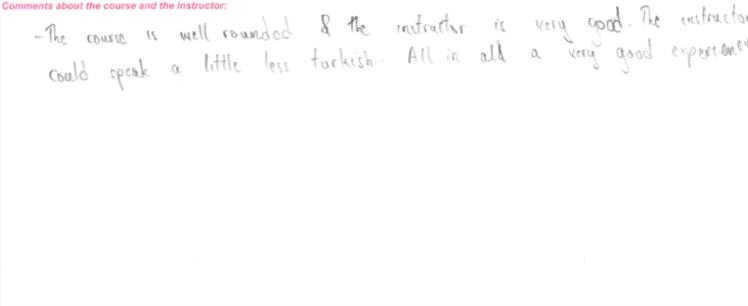 Comments about the course and the instructor:
- The course is well rounded & the instructor is very good. The instructor
could speak a little less turkish. All in all a very good experience